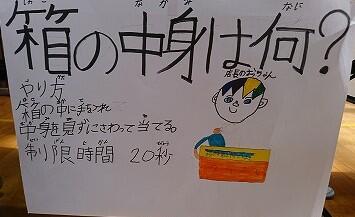 箱の中身は何？
やり方
箱の中に手を入れ
中身を見ずにさわって当てる。
制限時間 20秒